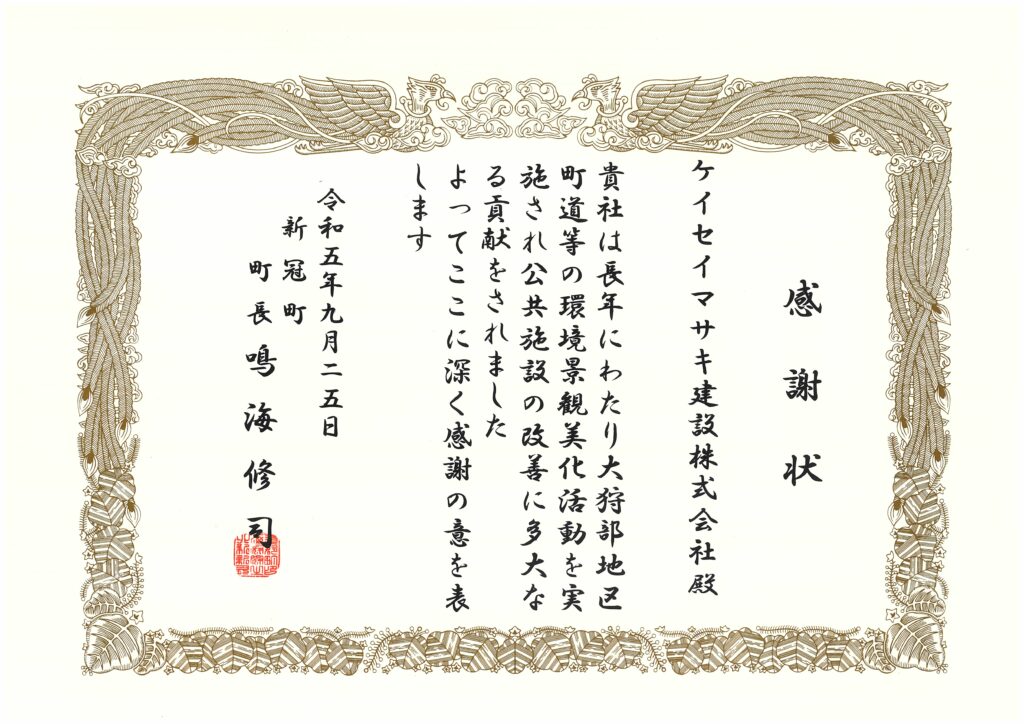 感謝状
ケイセイマサキ建設株式会社殿
貴社は長年にわたり大狩部地区
町道等の環境景観美化活動を実
施され公共施設の改善に多大な
る貢献をされました
よってここに深く感謝の意を表
します
令和五年九月二五日
新冠町
町長鳴海修司